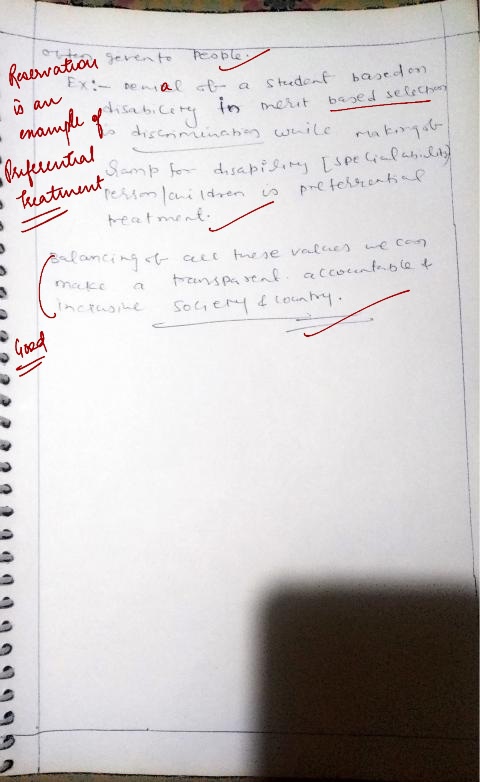 often given to people.
Reservation is an example of Preferential treatment
Ex:- Denial of a student based on
disability in merit based selection
is discrimination while making of
Ramp for disability [special ability]
person/children is preferrential
treatment.
Balancing of all these values we can
make a transparent, accountable &
inclusive society & country.
Good